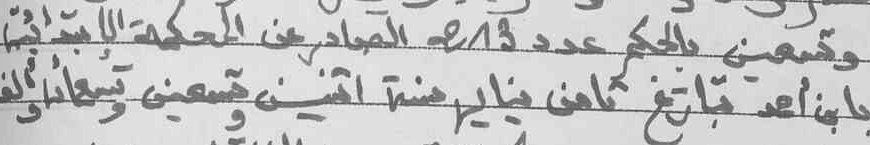 وتسعين بالحكم عدد 2813 الصادر عن المحكمة الإبتدائية
بابن أحمد بتاريخ ثامن يناير سنة اثنين وتسعين وتسعمائة وألف